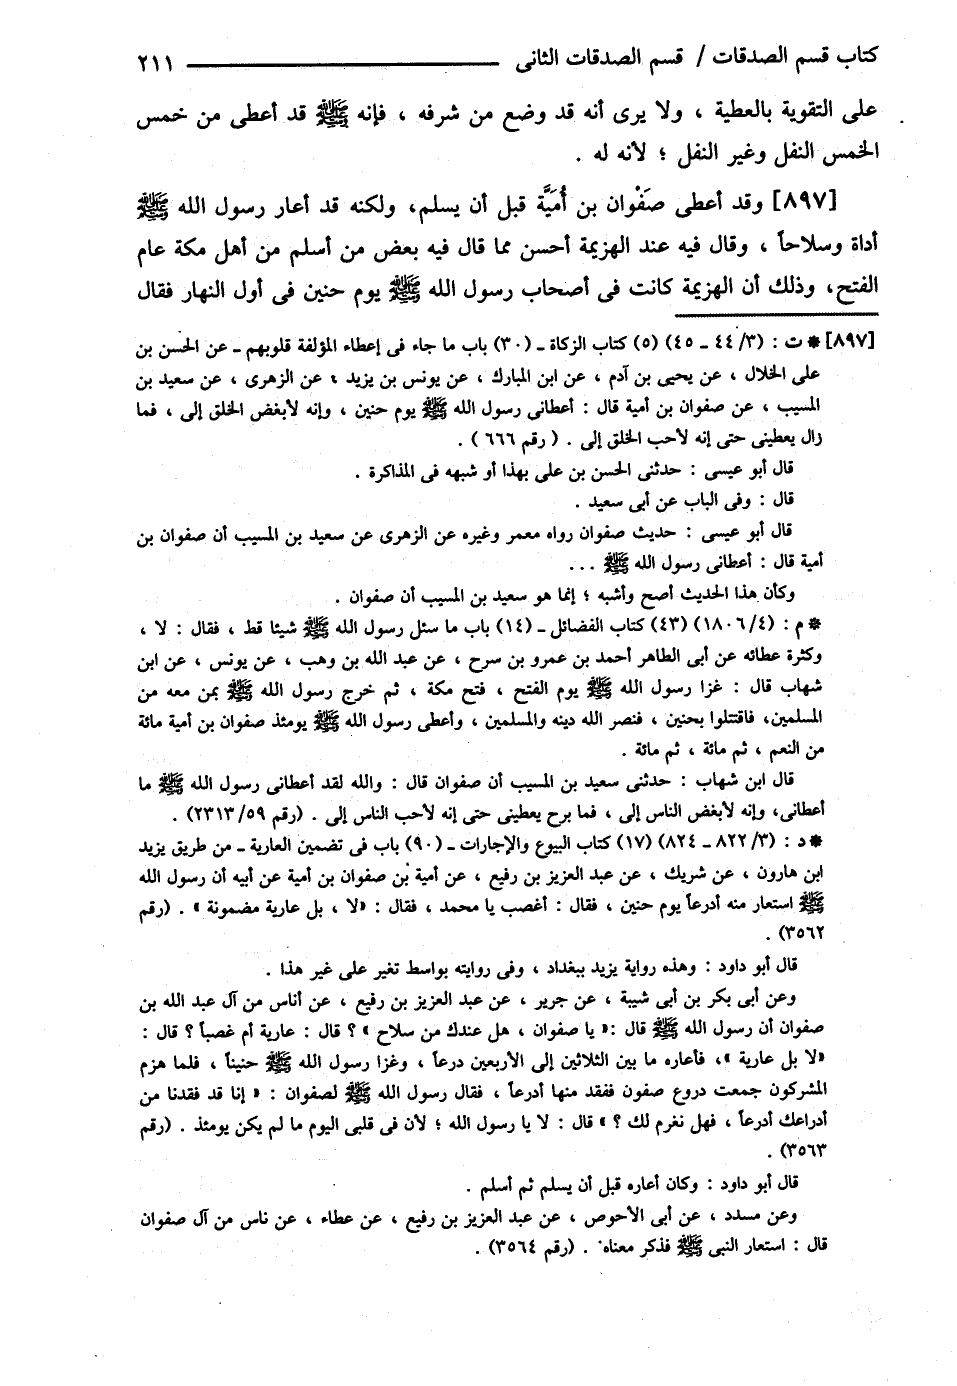 كتاب قسم الصدقات / قسم الصدقات الثانى ــــــــــــــــــ ٢١١
على التقوية بالعطية ، ولا يرى أنه قد وضع من شرفه ، فإنه ﷺ قد أعطى من خمس
الخمس النفل وغير النفل ؛ لأنه له .
[٨٩٧] وقد أعطى صَفْوان بن أُمَيَّة قبل أن يسلم، ولكنه قد أعار رسول الله ﷺ
أداة وسلاحاً ، وقال فيه عند الهزيمة أحسن مما قال فيه بعض من أسلم من أهل مكة عام
الفتح، وذلك أن الهزيمة كانت فى أصحاب رسول الله ﷺ يوم حنين فى أول النهار فقال
[٨٩٧] * ت : (٣/ ٤٤ ـ ٤٥) (٥) كتاب الزكاة ـ (٣٠) باب ما جاء فى إعطاء المؤلفة قلوبهم ـ عن الحسن بن
على الخلال ، عن يحيى بن آدم ، عن ابن المبارك ، عن يونس بن يزيد ، عن الزهرى ، عن سعيد بن
المسيب ، عن صفوان بن أمية قال : أعطانى رسول الله ﷺ يوم حنين ، وإنه لأبغض الخلق إلى ، فما
زال يعطينى حتى إنه لأحب الخلق إلى . ( رقم ٦٦٦ ) .
قال أبو عيسى : حدثنى الحسن بن على بهذا أو شبهه فى المذاكرة .
قال : وفى الباب عن أبى سعيد .
قال أبو عيسى : حديث صفوان رواه معمر وغيره عن الزهرى عن سعيد بن المسيب أن صفوان بن
أمية قال : أعطانى رسول الله ﷺ ...
وكأن هذا الحديث أصح وأشبه ؛ إنما هو سعيد بن المسيب أن صفوان .
* م : (٤/ ١٨٠٦) (٤٣) كتاب الفضائل ـ (١٤) باب ما سئل رسول الله ﷺ شيئا قط ، فقال : لا ،
وكثرة عطائه عن أبى الطاهر أحمد بن عمرو بن سرح ، عن عبد الله بن وهب ، عن يونس ، عن ابن
شهاب قال : غزا رسول الله ﷺ يوم الفتح ، فتح مكة ، ثم خرج رسول الله ﷺ بمن معه من
المسلمين، فاقتتلوا بحنين ، فنصر الله دينه والمسلمين ، وأعطى رسول الله ﷺ يومئذ صفوان بن أمية مائة
من النعم ، ثم مائة ، ثم مائة .
قال ابن شهاب : حدثنى سعيد بن المسيب أن صفوان قال : والله لقد أعطانى رسول الله ﷺ ما
أعطانى، وإنه لأبغض الناس إلى ، فما برح يعطينى حتى إنه لأحب الناس إلى . (رقم ٥٩/ ٢٣١٣) .
* د : (٣/ ٨٢٢ ـ ٨٢٤) (١٧) كتاب البيوع والإجارات ـ (٩٠) باب فى تضمين العارية ـ من طريق يزيد
ابن هارون ، عن شريك ، عن عبد العزيز بن رفيع ، عن أمية بن صفوان بن أمية عن أبيه أن رسول الله
ﷺ استعار منه أدرعاً يوم حنين ، فقال : أغصب يا محمد ، فقال : «لا ، بل عارية مضمونة » . (رقم
٣٥٦٢) .
قال أبو داود : وهذه رواية يزيد ببغداد ، وفى روايته بواسط تغير على غير هذا .
وعن أبى بكر بن أبى شيبة ، عن جرير ، عن عبد العزيز بن رفيع ، عن أناس من آل عبد الله بن
صفوان أن رسول الله ﷺ قال :« يا صفوان ، هل عندك من سلاح » ؟ قال : عارية أم غصباً ؟ قال :
«لا بل عارية »، فأعاره ما بين الثلاثين إلى الأربعين درعاً ، وغزا رسول الله ﷺ حنيناً ، فلما هزم
المشركون جمعت دروع صفون ففقد منها أدرعاً ، فقال رسول الله ﷺ لصفوان : « إنا قد فقدنا من
أدراعك أدرعاً ، فهل نغرم لك ؟ » قال : لا يا رسول الله ؛ لأن فى قلبى اليوم ما لم يكن يومئذ . (رقم
٣٥٦٣) .
قال أبو داود : وكان أعاره قبل أن يسلم ثم أسلم .
وعن مسدد ، عن أبى الأحوص ، عن عبد العزيز بن رفيع ، عن عطاء ، عن ناس من آل صفوان
قال : استعار النبى ﷺ فذكر معناه . (رقم ٣٥٦٤) .